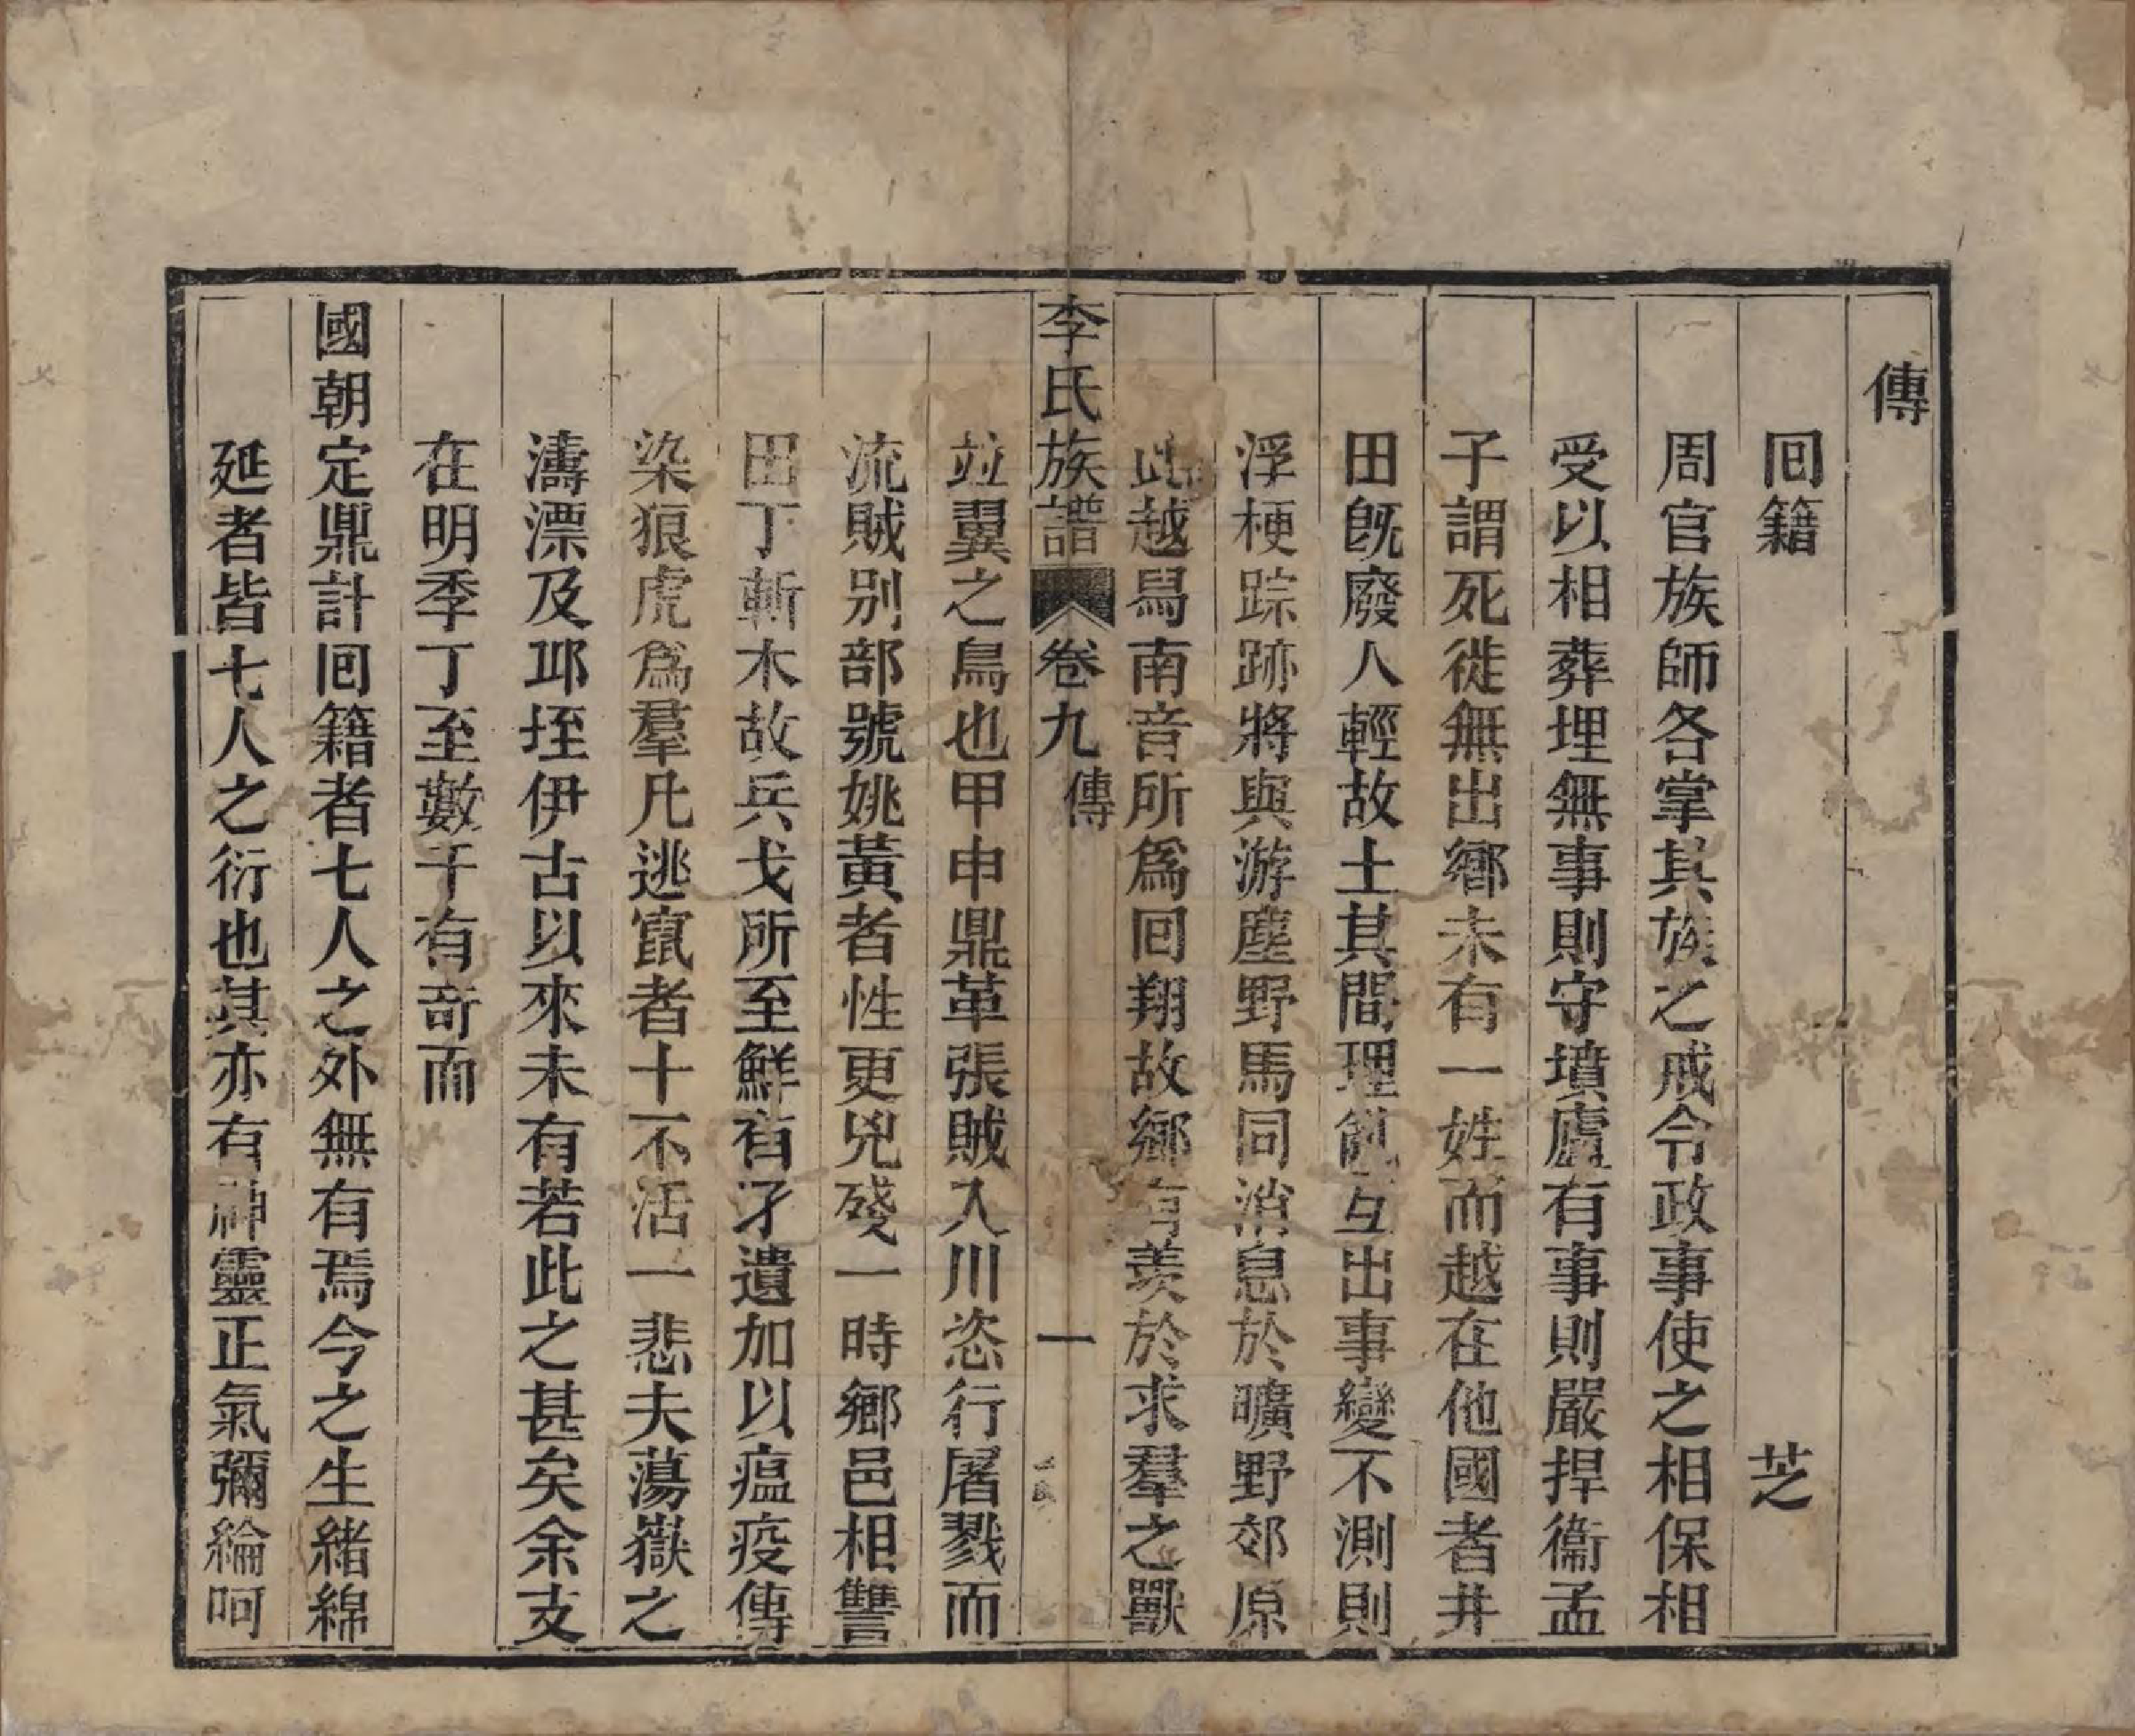 傳
囘籍　芝
周官族師各掌其族之戒令政事使之相保相
受以相葬埋無事則守墳廬有事則嚴捍衞孟
子謂死徙無出鄉未有一姓而越在他國者井
田旣廢人輕故土其間理亂互出事變不測則
浮梗踪跡將與游塵野馬同消息於曠野郊原
此越舄南音所爲囘翔故鄉有羨於求羣之獸
李氏族譜 卷九 傳 一
竝翼之鳥也甲申鼎革張賊入川恣行屠戮而
流賊別部號姚黃者性更兇殘一時鄉邑相讐
田丁斬木故兵戈所至鮮有孑遺加以瘟疫傳
染狼虎爲羣凡逃竄者十不活一悲夫蕩嶽之
濤漂及邛垤伊古以來未有若此之甚矣余支
在明季丁至數千有奇而
國朝定鼎計囘籍者七人之外無有焉今之生緒綿
延者皆七人之衍也其亦有神靈正氣彌綸呵